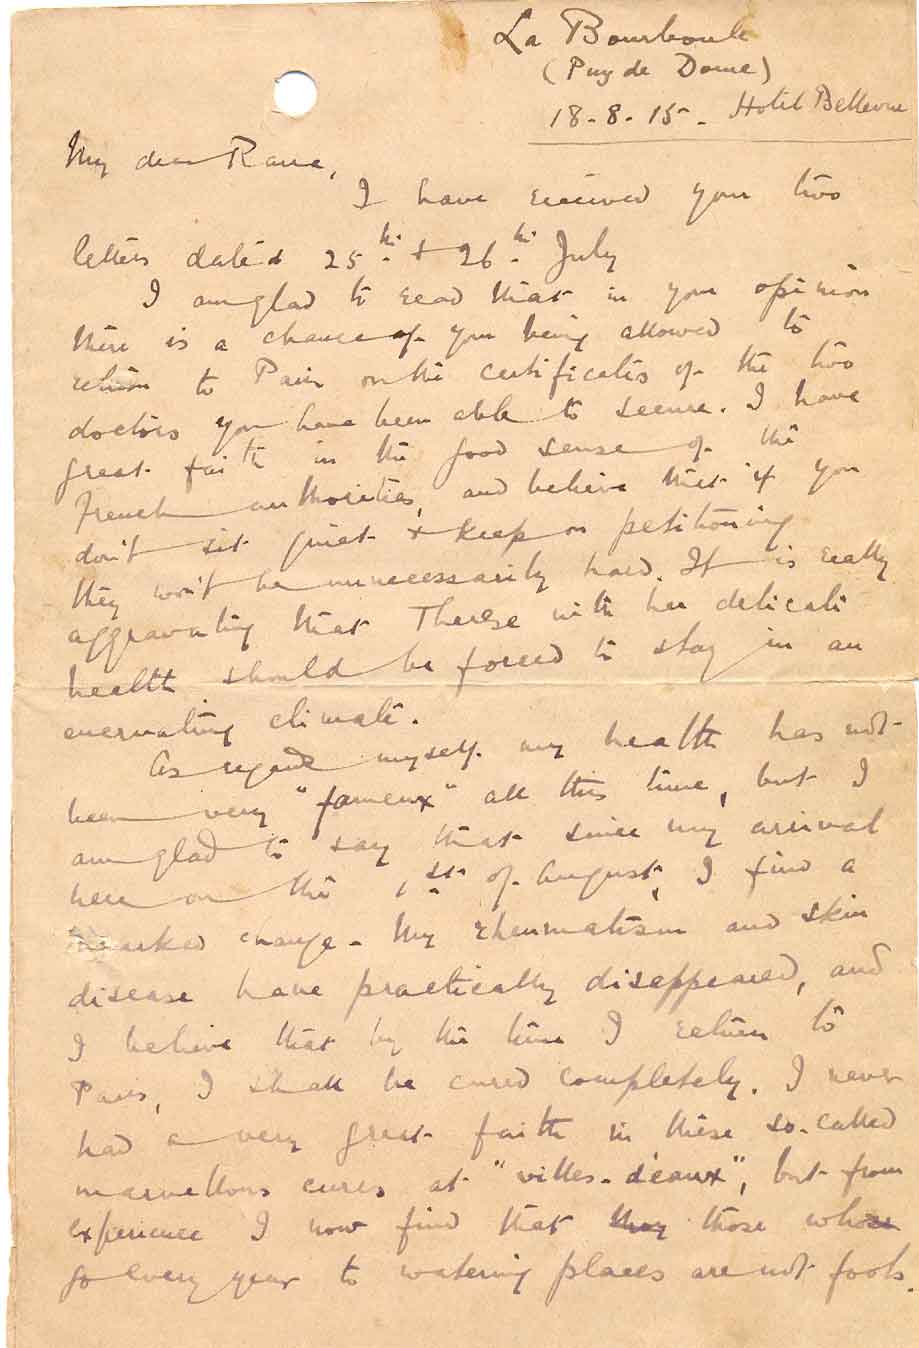 La Bourboule
(Puy de Dome)
18-8-15- Hotel Bellevue
My dear Rana,
I have received your two
letters dated 25th & 26th July
I am glad to read that in your opinion
there is a chance of your being allowed to
return to Paris on the certificates of the two
doctors you have been able to secure. I have
great faith in the good sense of the
French authorities, and believe that if you
don't sit quiet & keep on petitioning
they won't be unnecessarily hard. It is really
aggravating that Therese with her delicate
health should be forced to stay in an
enervating climate.
As regards myself my health has not
been very "fameux" all this time, but I
am glad to say that since my arrival
here on the 1st of August, I find a
marked change - My rheumatism and skin
disease have practically disappeared, and
I believe that by the time I return to
Paris, I shall be cured completely. I never
had a very great faith in these so-called
marvellous cures at "villes-d'eaux", but from
experience I now find that they those who
go every year to watering places are not fools.